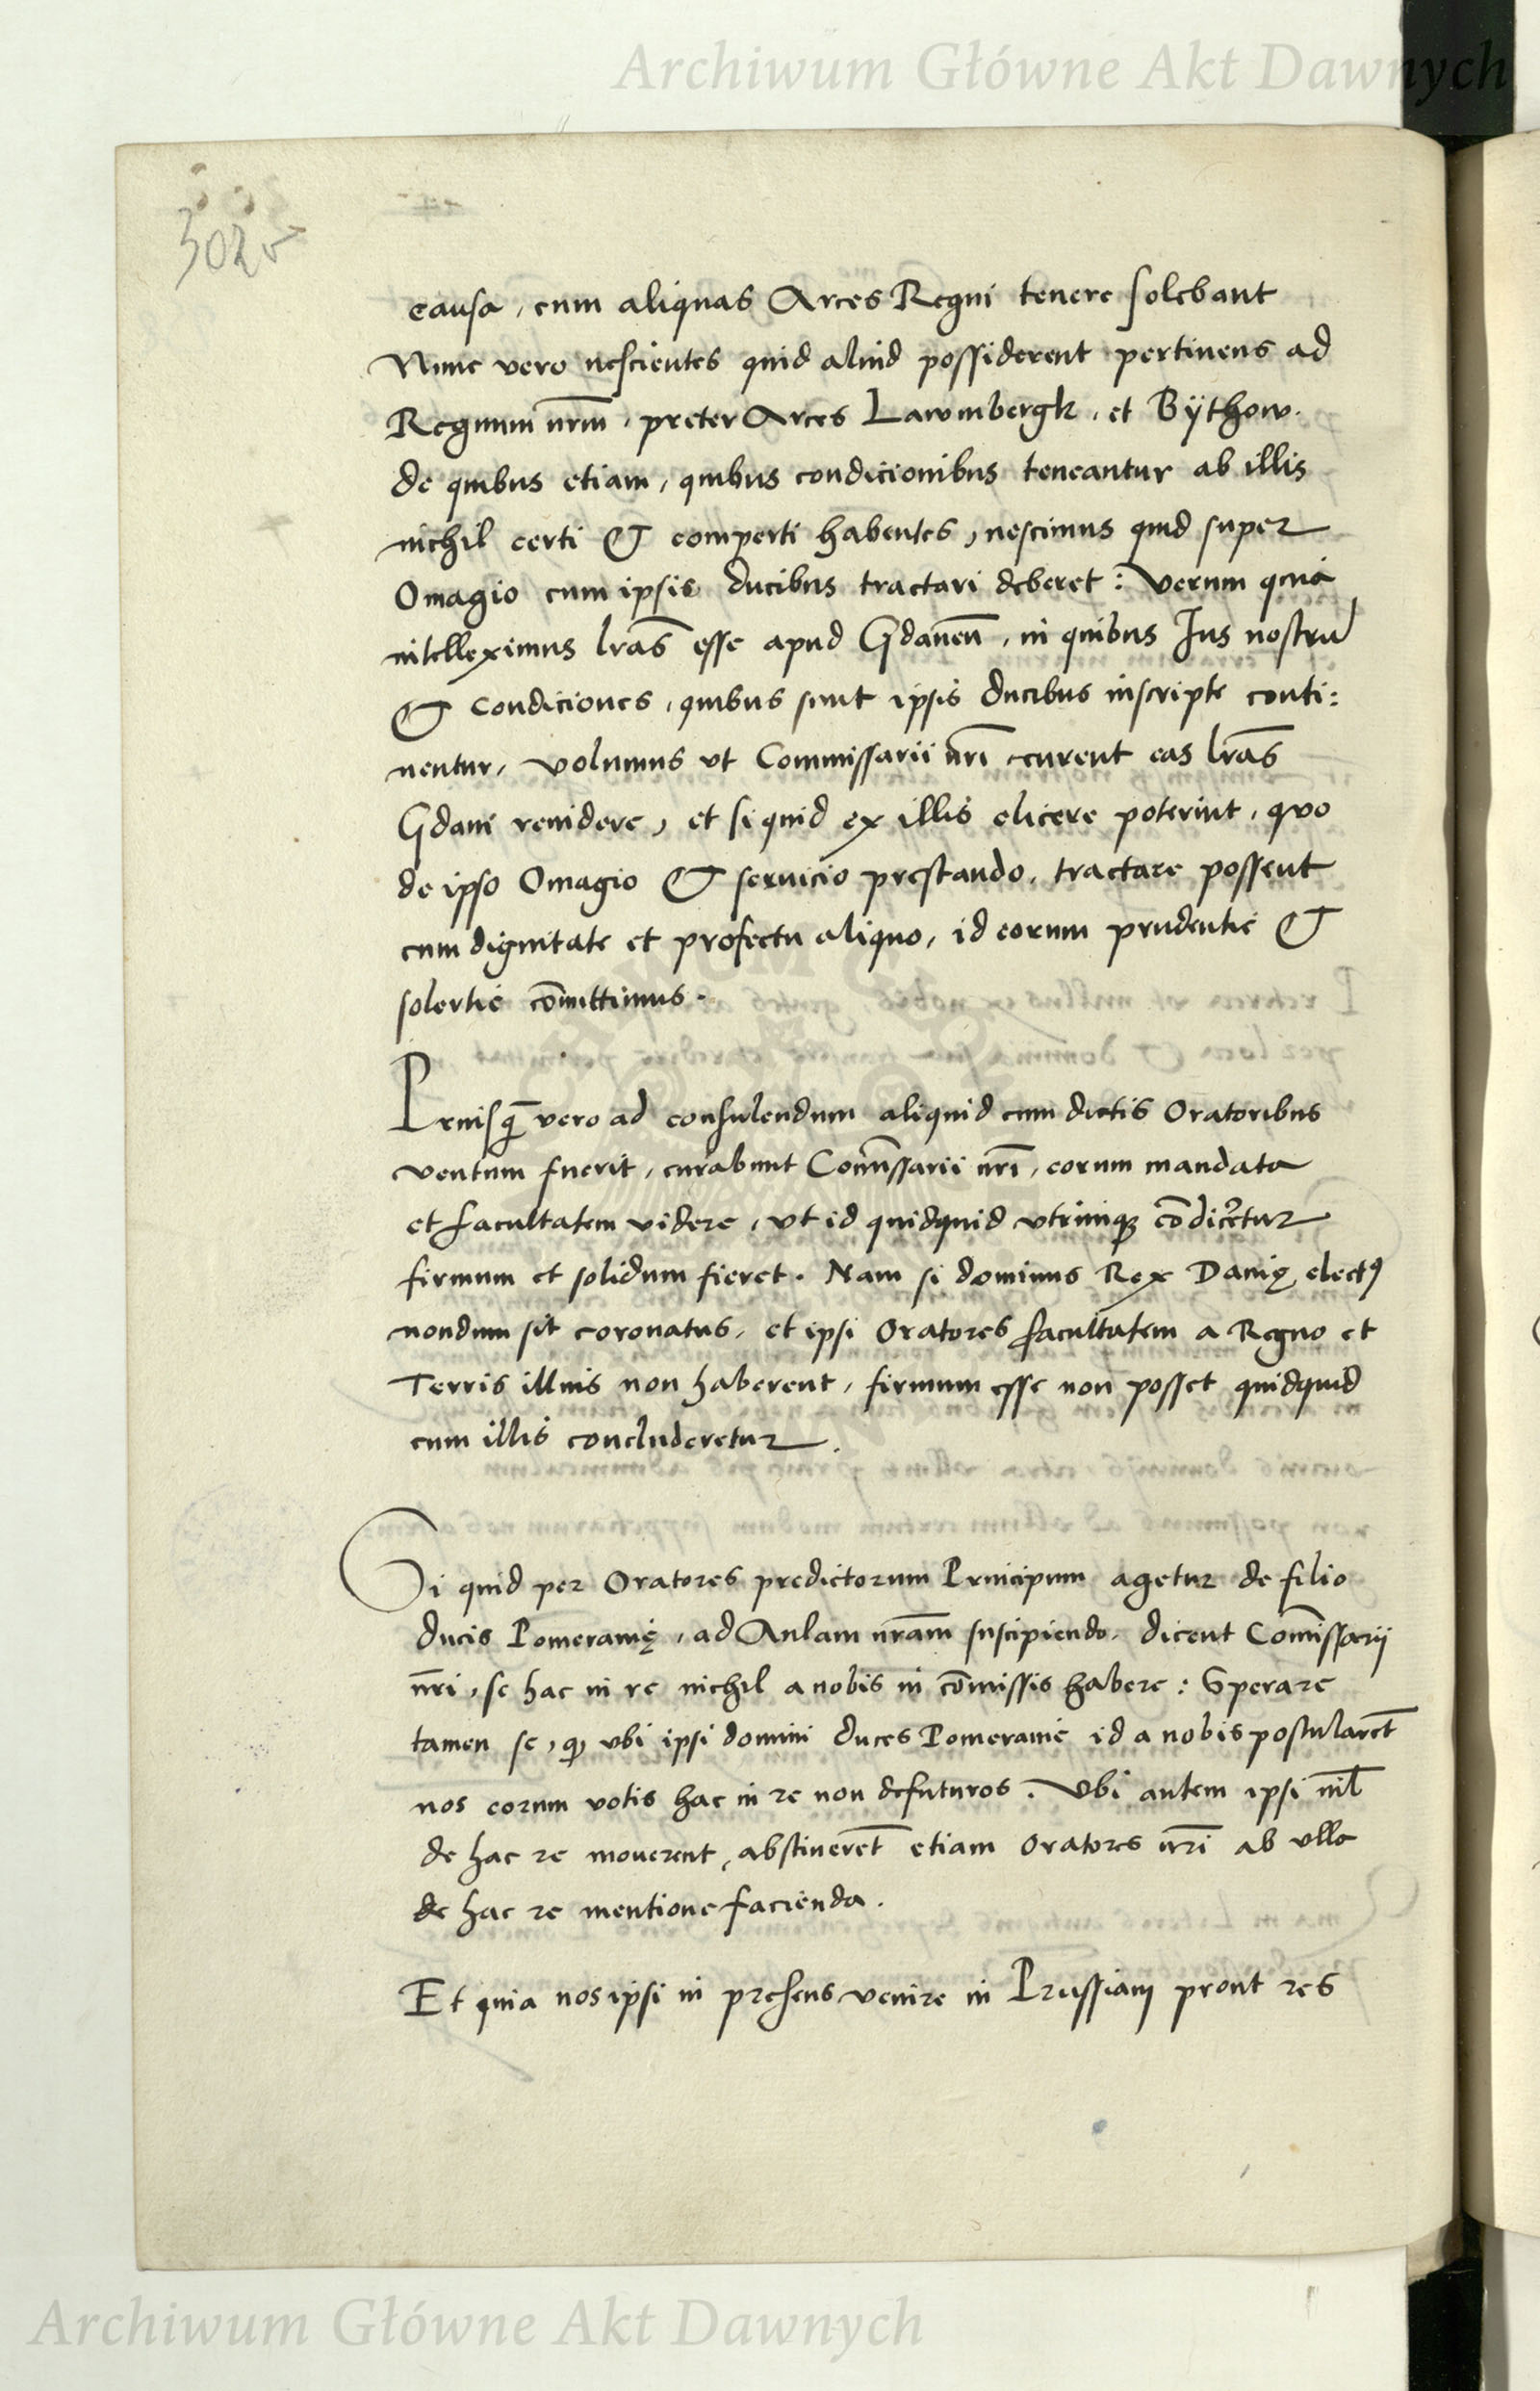 Archiwum Główne Akt Dawnych
302v
causa, cum aliquas Arces Regni tenere solebant
Nunc vero nescientes quid aliud possiderent pertinens ad
Regnum nr̄m, preter Arces Lawmbergk, et Bÿthow.
de quibus etiam, quibus condicionibus teneantur ab illis
nichil certi & comperti habentes, nescimus quid super
Omagio cum ipsis ducibus tractari deberet: Verum quia
intelleximus lr̄as esse apud Gdanen̄, in quibus Ius nostrū
& condiciones, quibus sunt ipsis ducibus inscripte conti:
nentur, volumus vt Commissarii nr̄i curent eas lr̄as
Gdani reuidere, et si quid ex illis elicere poterint, quo
de ipso Omagio & seruicio prestando, tractare possent
cum dignitate et profectu aliquo, id eorum prudentie &
solertie com̄ittimus.
Priusq̄ vero ad consulendum aliquid cum dictis Oratoribus
ventum fuerit, curabunt Com̄issarii nr̄i, eorum mandata
et facultatem videre, vt id quidquid vtrimq; cōdicetur
firmum et solidum fieret. Nam si dominus Rex Danię elect9
nondum sit coronatus, et ipsi Oratores facultatem a Regno et
Terris illius non haberent, firmum esse non posset quidquid
cum illis concluderetur.
Si quid per Oratores predictorum Principum agetur de filio
ducis Pomeranię, ad Aulam nr̄am suscipiendo, dicent Com̄issarij
nr̄i, se hac in re nichil a nobis in com̄issis habere: Sperare
tamen se, q vbi ipsi domini duces Pomeranie id a nobis postularēt
nos eorum votis hac in re non defuturos. Vbi autem ipsi nīl
de hac re mouerent, abstinerēt etiam Oratores nr̄i ab vlla
de hac re mentione facienda.
Et quia nos ipsi in presens venire in Prussiam prout res
Archiwum Główne Akt Dawnych